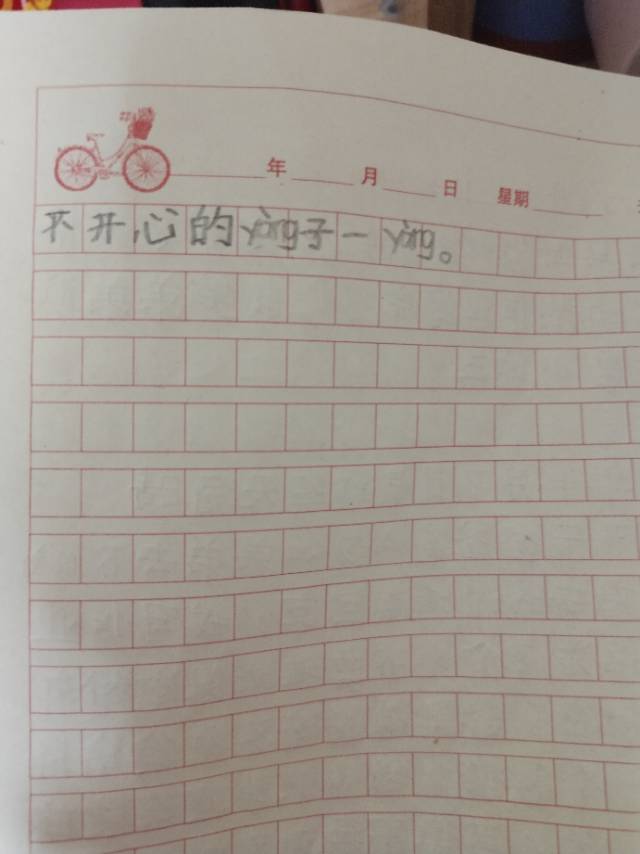 年 月 日 星期
不开心的yàng子一yàng。